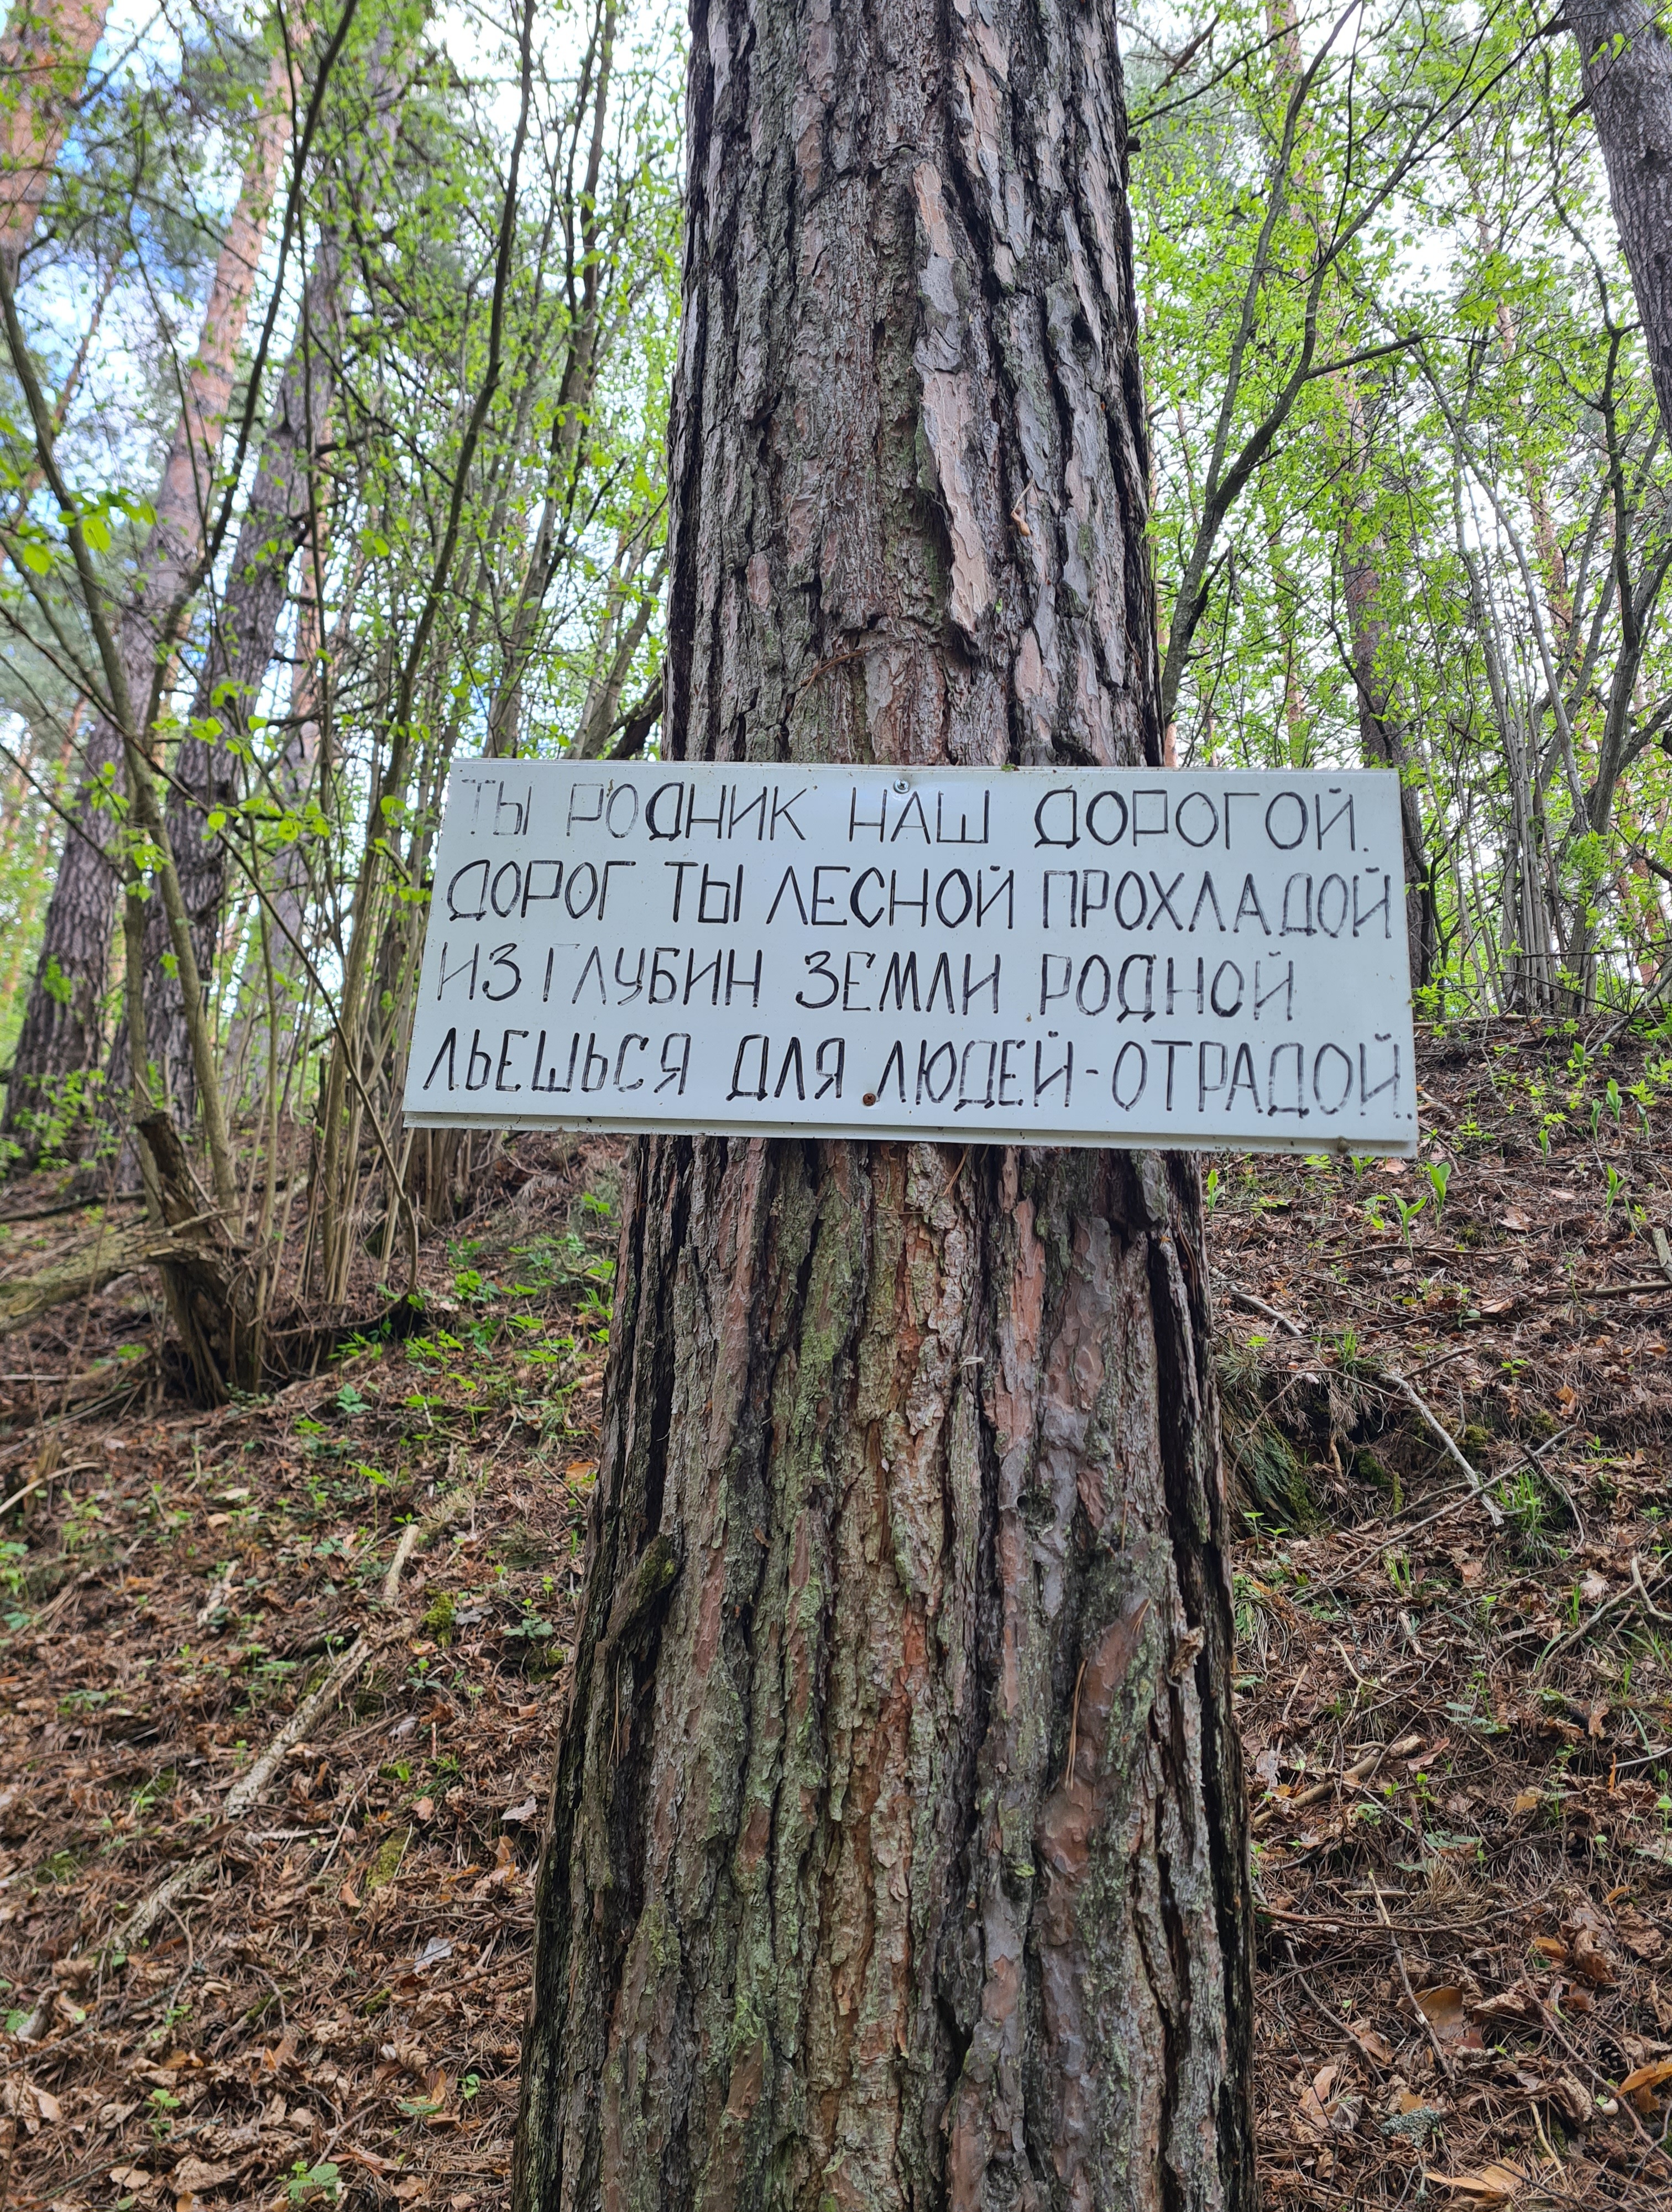 ТЫ РОДНИК НАШ ДОРОГОЙ.
ДОРОГ ТЫ ЛЕСНОЙ ПРОХЛАДОЙ
ИЗ ГЛУБИН ЗЕМЛИ РОДНОЙ
ЛЬЕШЬСЯ ДЛЯ ЛЮДЕЙ-ОТРАДОЙ.